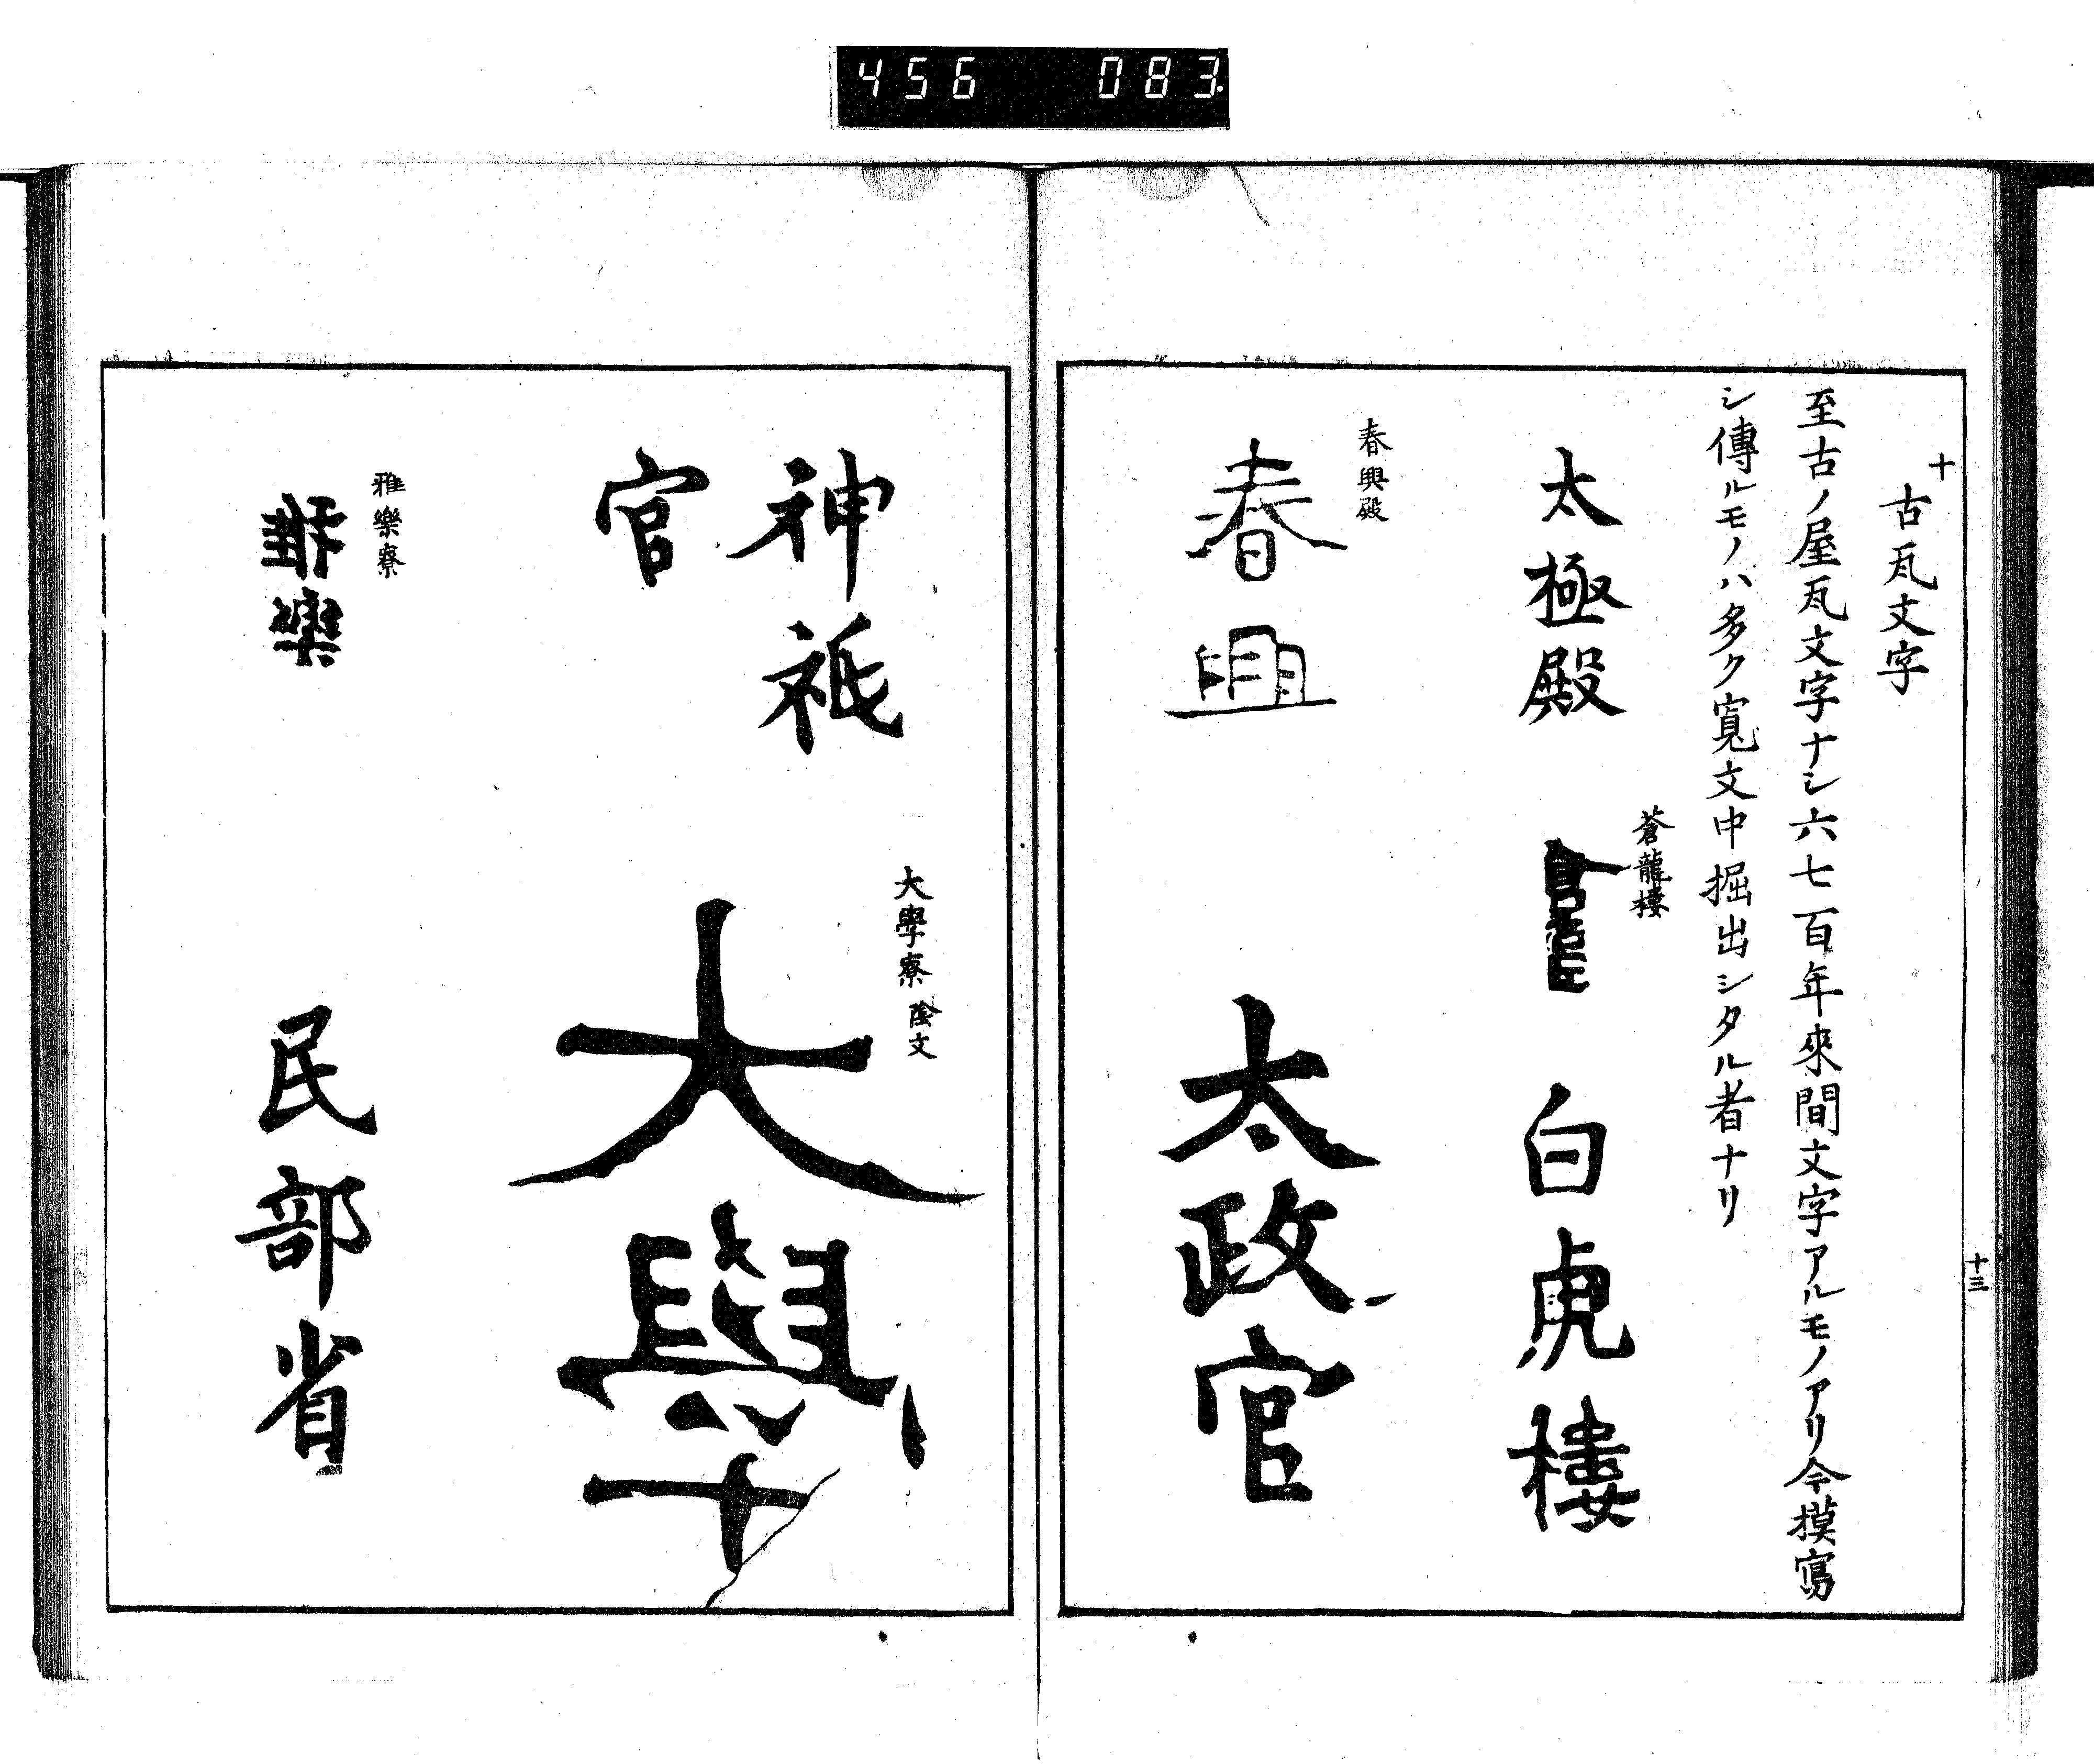 456 083
十
古瓦文字
至古ノ屋瓦文字ナシ六七百年來間文字アルモノアリ今摸寫
シ傳ルモノハ多ク寛文中掘出シタル者ナリ
太極殿
蒼龍樓
白虎樓
春興殿
春興
太政官
十三
神祇
官
大學寮 陰文
大學
雅樂寮
雅樂
民部省